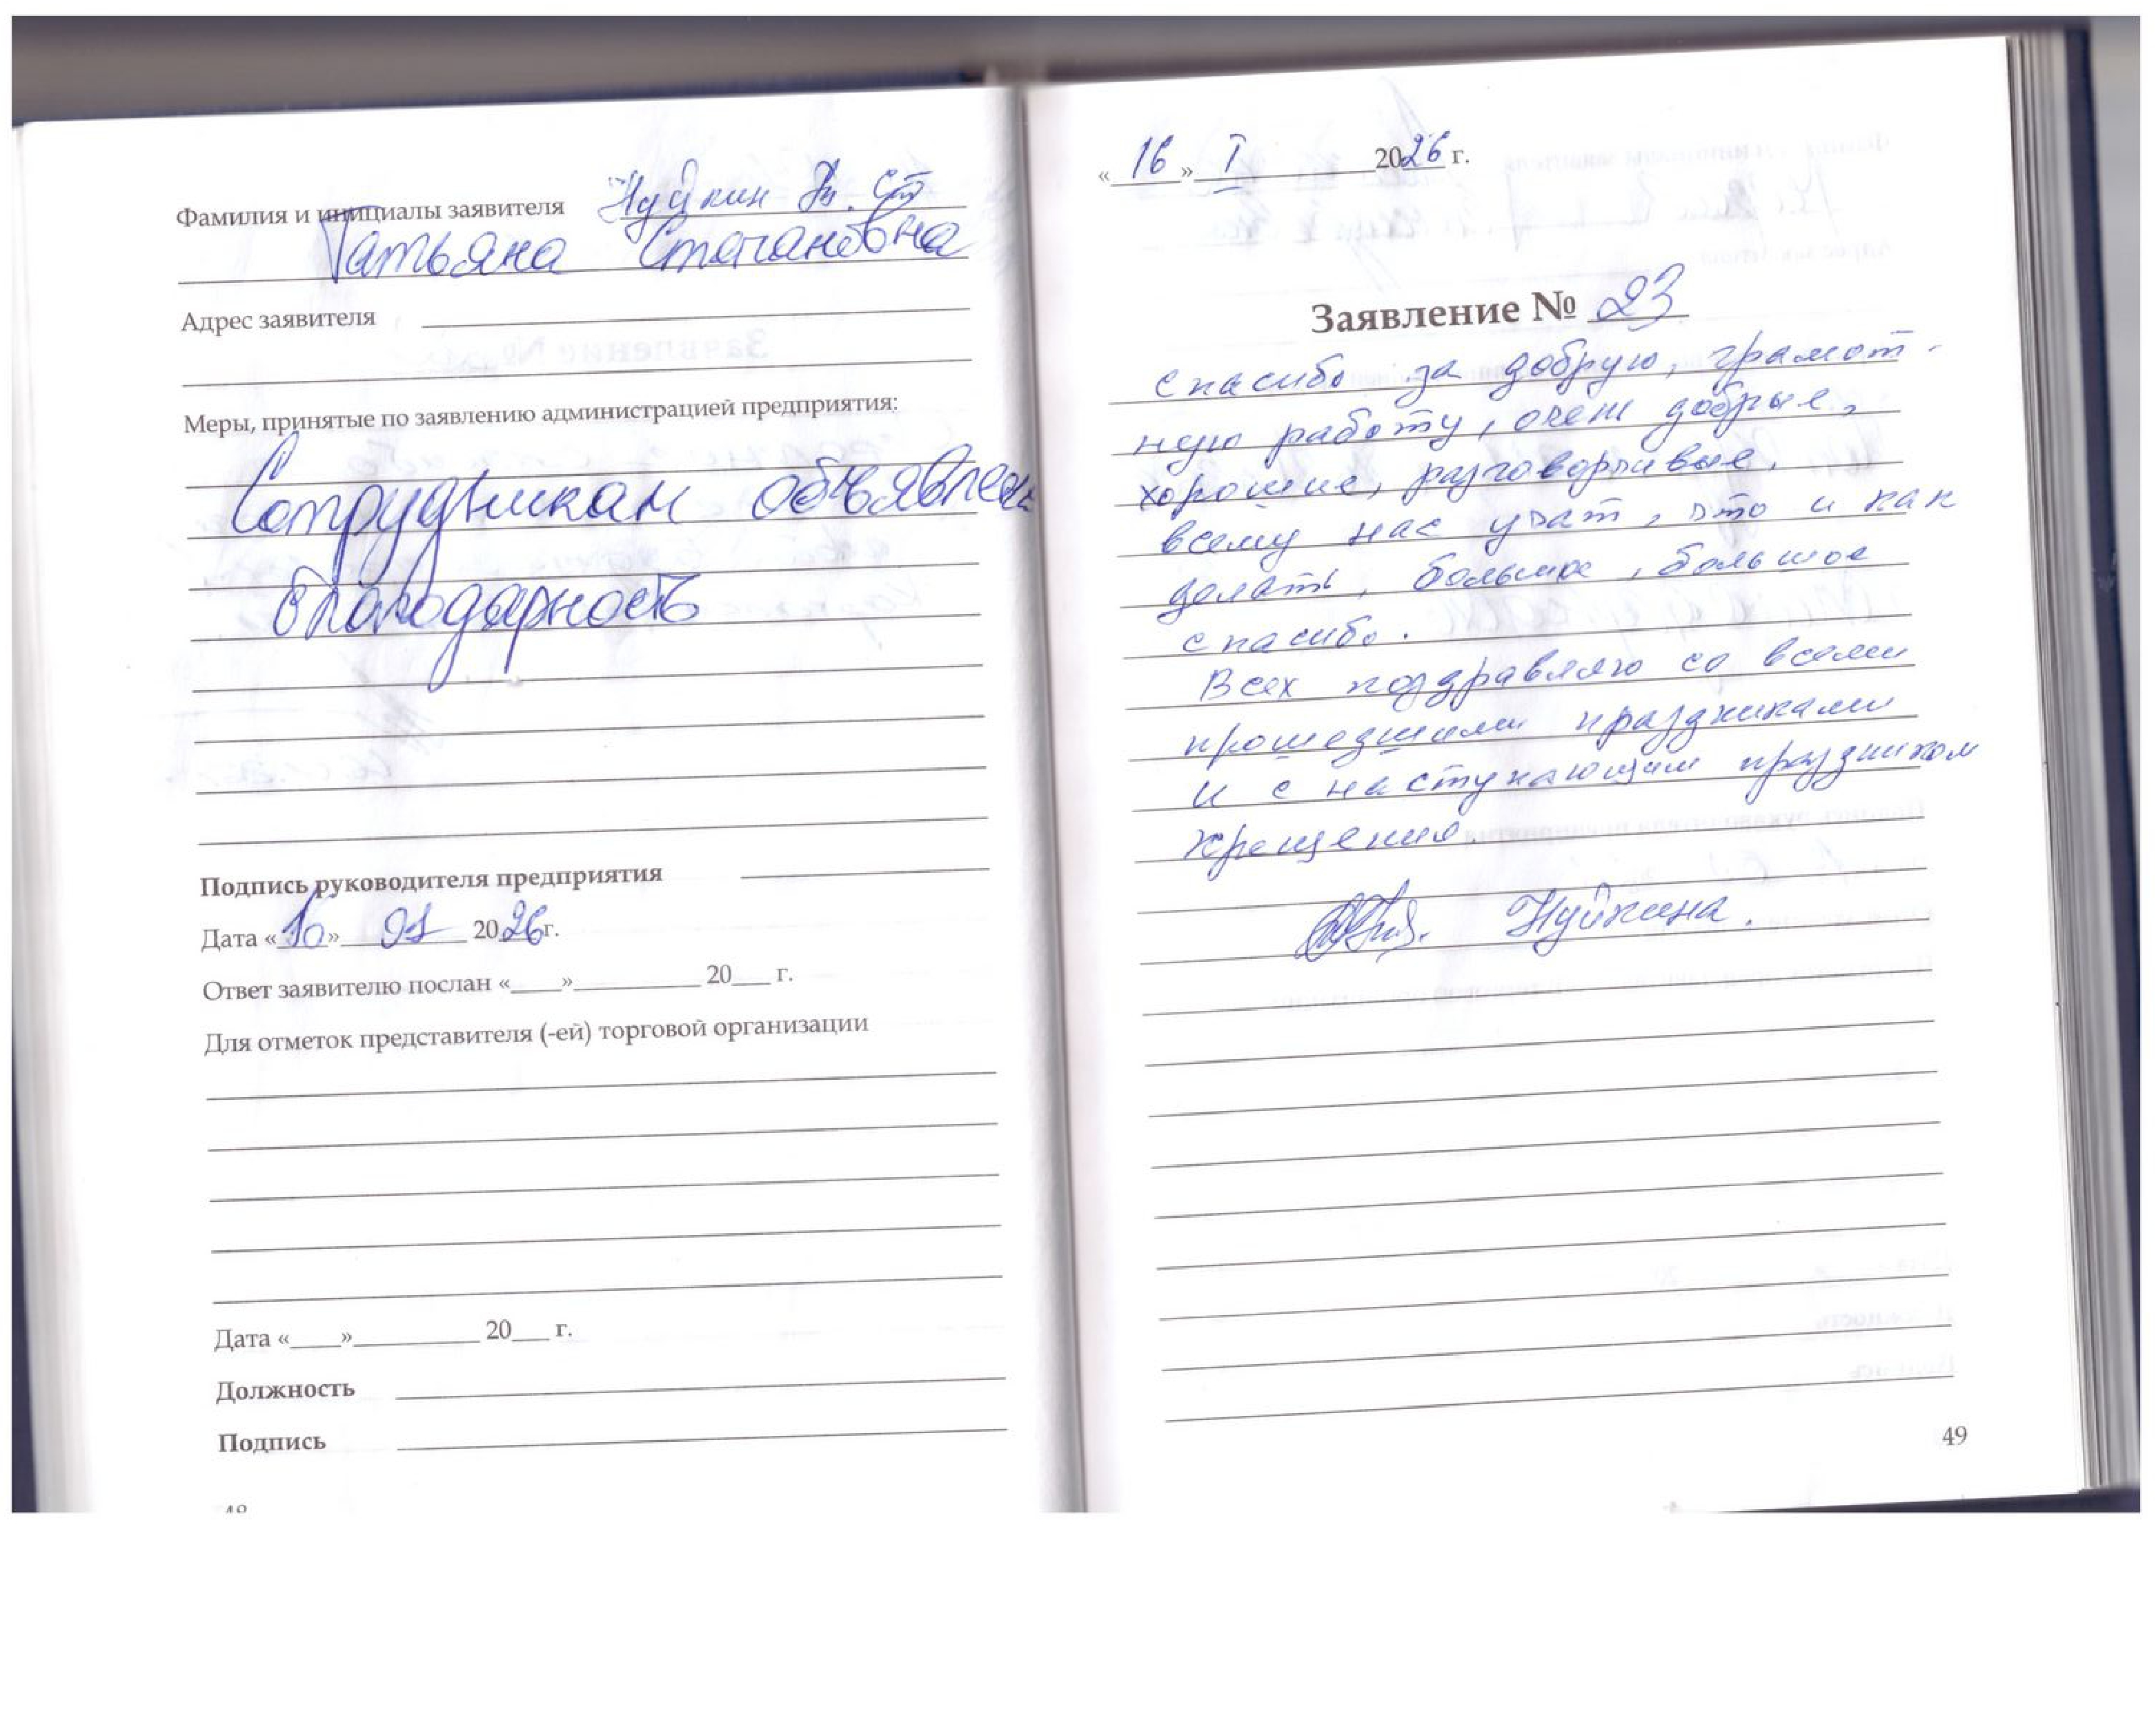 Фамилия и инициалы заявителя Нуйкин Т. Ст
Татьяна Степановна
Адрес заявителя
Меры, принятые по заявлению администрацией предприятия:
Сотрудникам объявлена
благодарность
Подпись руководителя предприятия
Дата «16» 01 2026 г.
Ответ заявителю послан «____»__________ 20___ г.
Для отметок представителя (-ей) торговой организации
Дата «____»__________ 20___ г.
Должность
Подпись
«16» I 2026 г.
Заявление № 23
спасибо за добрую, грамот-
ную работу, очень добрые,
хорошие, разговорчивые,
всему нас учат, что и как
делать, большое, большое
спасибо.
Всех поздравляю со всеми
прошедшими праздниками
и с наступающим праздником
крещения.
Нуйкина.
49